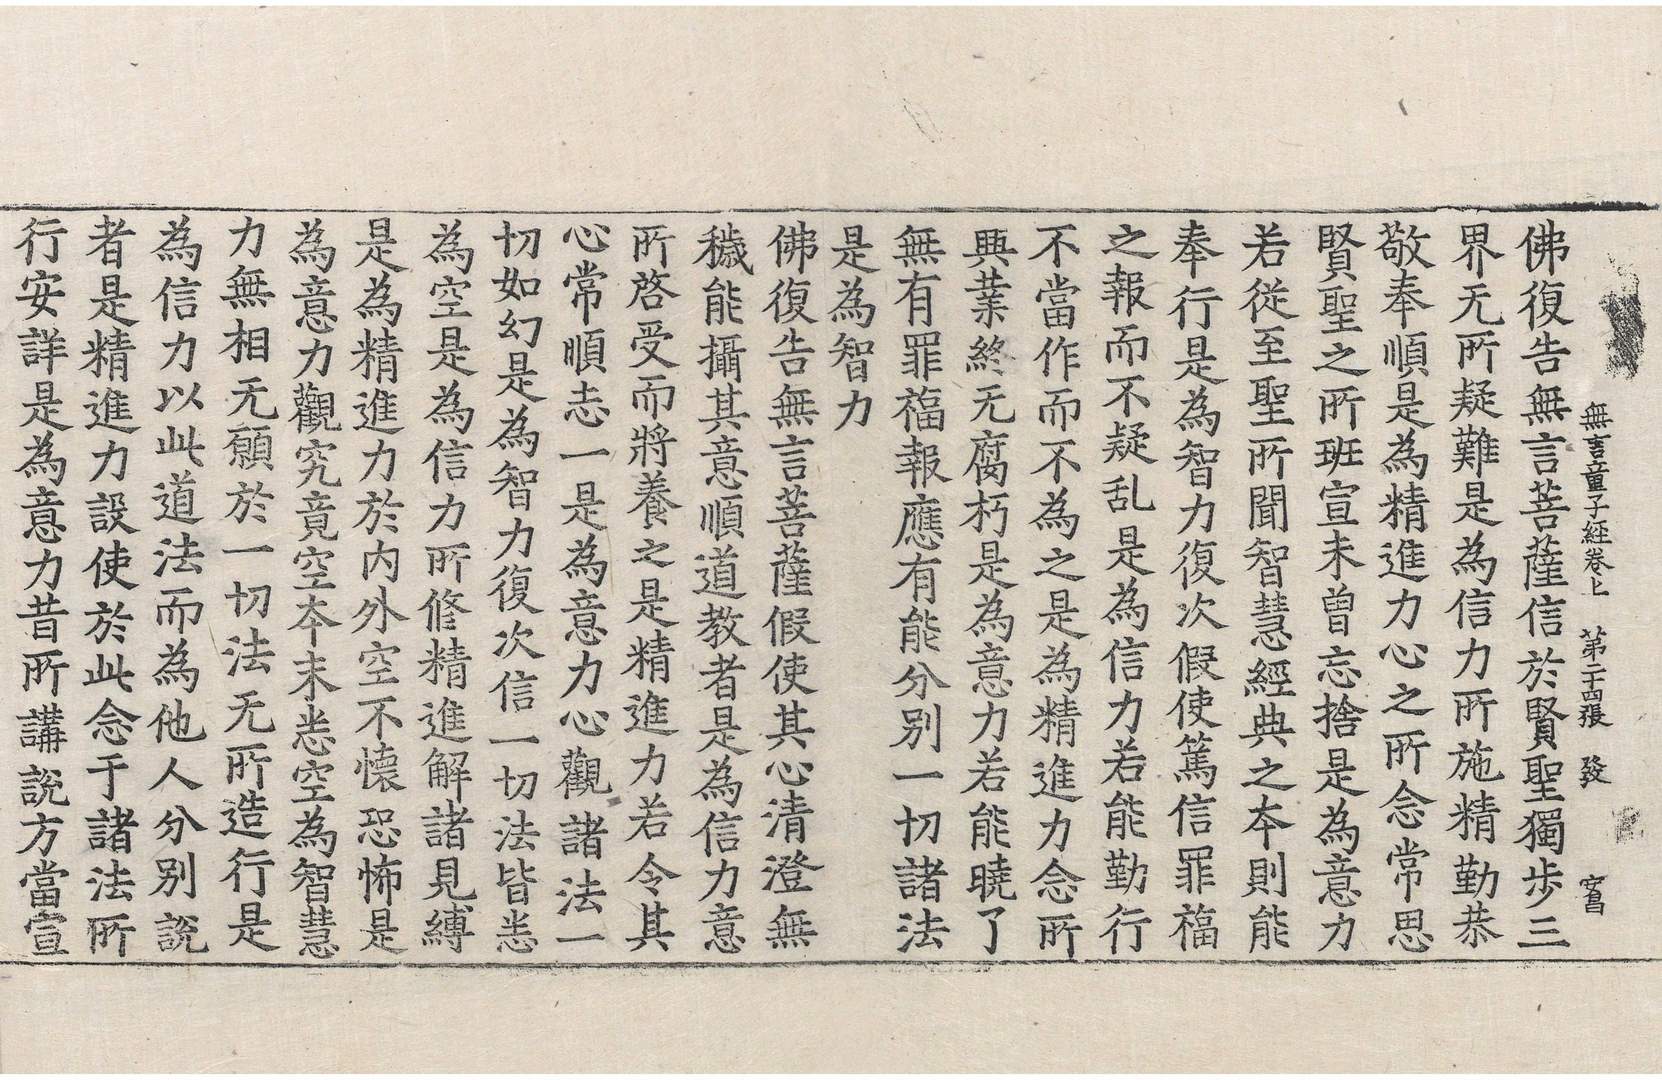 無言童子經卷上　第二十四張　發　安富
佛復告無言菩薩信於賢聖獨步三
界无所疑難是為信力所施精勤恭
敬奉順是為精進力心之所念常思
賢聖之所班宣未曾忘捨是為意力
若從至聖所聞智慧經典之夲則能
奉行是為智力復次假使篤信罪福
之報而不疑乱是為信力若能勤行
不當作而不為之是為精進力念所
興業終无腐朽是為意力若能曉了
無有罪福報應有能分別一切諸法
是為智力
佛復告無言菩薩假使其心清澄無
穢能攝其意順道教者是為信力意
所啓受而將養之是精進力若令其
心常順志一是為意力心觀諸法一
切如幻是為智力復次信一切法皆悉
為空是為信力所修精進解諸見縛
是為精進力於内外空不懐恐怖是
為意力觀究竟空夲末悉空為智慧
力無相无願於一切法无所造行是
為信力以此道法而為他人分別說
者是精進力設使於此念于諸法所
行安詳是為意力昔所講說方當宣